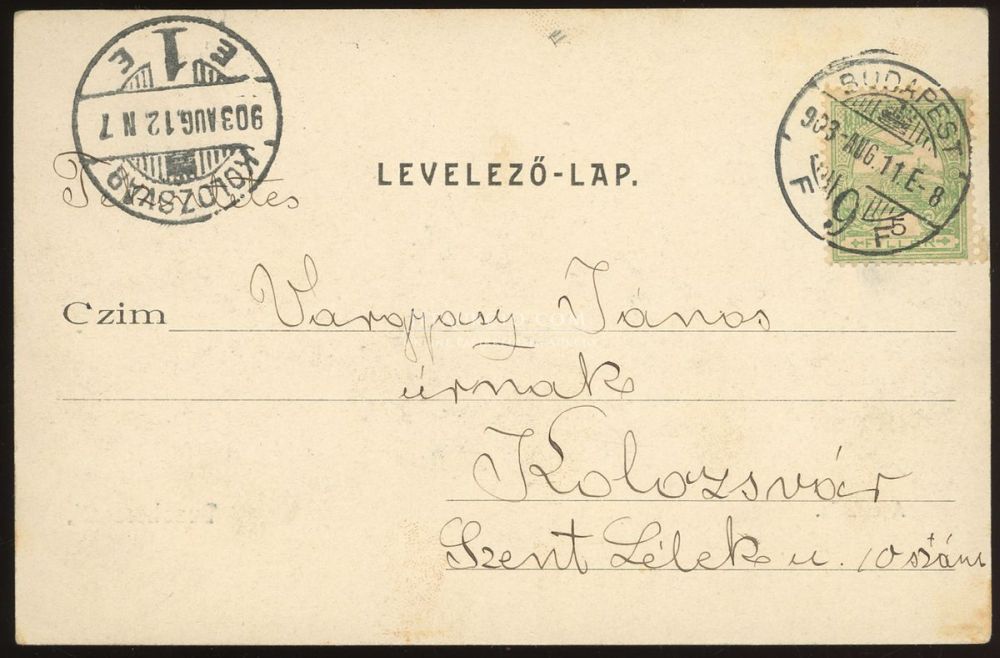 1
E E
903 AUG. 12 N 7
KOLOZSVÁR
BUDAPEST
903-AUG. 11. E-8
F 9 F
5
FILLÉR
LEVELEZŐ-LAP.
Tekintetes
Czim Vargyasy János
úrnak
Kolozsvár
Szent Lélek u. 10 szám